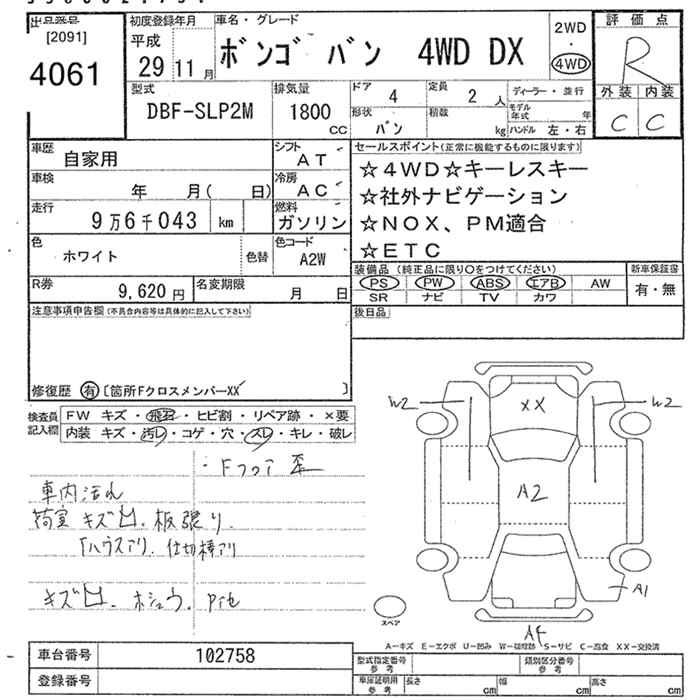 出品番号
[2091]
4061
初度登録年月
平成
29 11 月
車名・グレード
ボンゴ バン 4WD DX
2WD
・
4WD
評価点
R
外装 内装
C C
型式
DBF-SLP2M
排気量
1800
CC
ドア
4
定員
2 人
ディーラー・並行
形状
バン
積載
kg
モデル年式 年
ハンドル 左・右
車歴
自家用
シフト
AT
車検
年 月( 日)
冷房
AC
走行
9万6千043 km
燃料
ガソリン
色
ホワイト
色替
色コード
A2W
R券
9,620 円
名変期限
月 日
セールスポイント(正常に機能するものに限ります)
☆4WD☆キーレスキー
☆社外ナビゲーション
☆NOX、PM適合
☆ETC
装備品 (純正品に限り○をつけてください)
PS PW ABS エアB AW
SR ナビ TV カワ
新車保証書
有・無
注意事項申告欄(不具合内容等は具体的に記入して下さい)
後日品
修復歴 有 〔箇所Fクロスメンバー××〕
検査員
記入欄
FW キズ・飛石・ヒビ割・リペア跡・×要
内装 キズ・汚レ・コゲ・穴・スレ・キレ・破レ
・Fフロア 歪
車内汚れ
荷室 キズ凹、板張り
仕切棒アリ
キズ凹、ホシュウ、P他
W2
XX
W2
A2
A1
A4
スペア
A-キズ E-エクボ U-凹み W-補修跡 S-サビ C-腐食 XX-交換済
車台番号
102758
登録番号
型式指定番号
参考
類別区分番号
参考
車庫証明用
参考
長さ cm
幅 cm
高さ cm